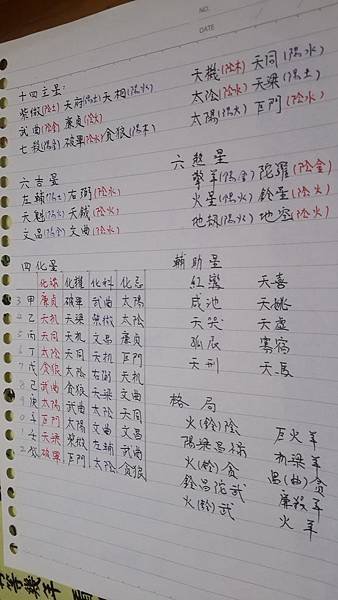 NO.
DATE
十四主星:
紫微(陰土)天府(陽土)天相(陽水)
武曲(陰金)廉貞(陰火)
七殺(陽金)破軍(陰水)貪狼(陽木)
天機(陰木) 天同(陽水)
太陰(陰水) 天梁(陽土)
太陽(陽火) 巨門(陰水)
六吉星
左輔(陽土)右弼(陰水)
天魁(陽火)天鉞(陰火)
文昌(陽金)文曲(陰水)
六煞星
擎羊(陽金)陀羅(陰金)
火星(陽火)鈴星(陰火)
地劫(陽火)地空(陰火)
四化星
化祿 化權 化科 化忌
3 甲 廉貞 破軍 武曲 太陽
4 乙 天机 天梁 紫微 太陰
5 丙 天同 天机 文昌 廉貞
6 丁 太陰 天同 天机 巨門
7 戊 貪狼 太陰 右弼 天机
8 己 武曲 貪狼 天梁 文曲
9 庚 太陽 武曲 太陰 天同
0 辛 巨門 太陽 文曲 文昌
1 壬 天梁 紫微 左輔 武曲
2 癸 破軍 巨門 太陰 貪狼
輔助星
紅鸞 天喜
咸池 天姚
天哭 天虛
孤辰 寡宿
天刑 天馬
格局
火(鈴)陰 巨火羊
陽梁昌祿 机梁羊
火(鈴)貪 昌(曲)貪
鈴昌陀武 廉殺羊
火(鈴)武 火羊